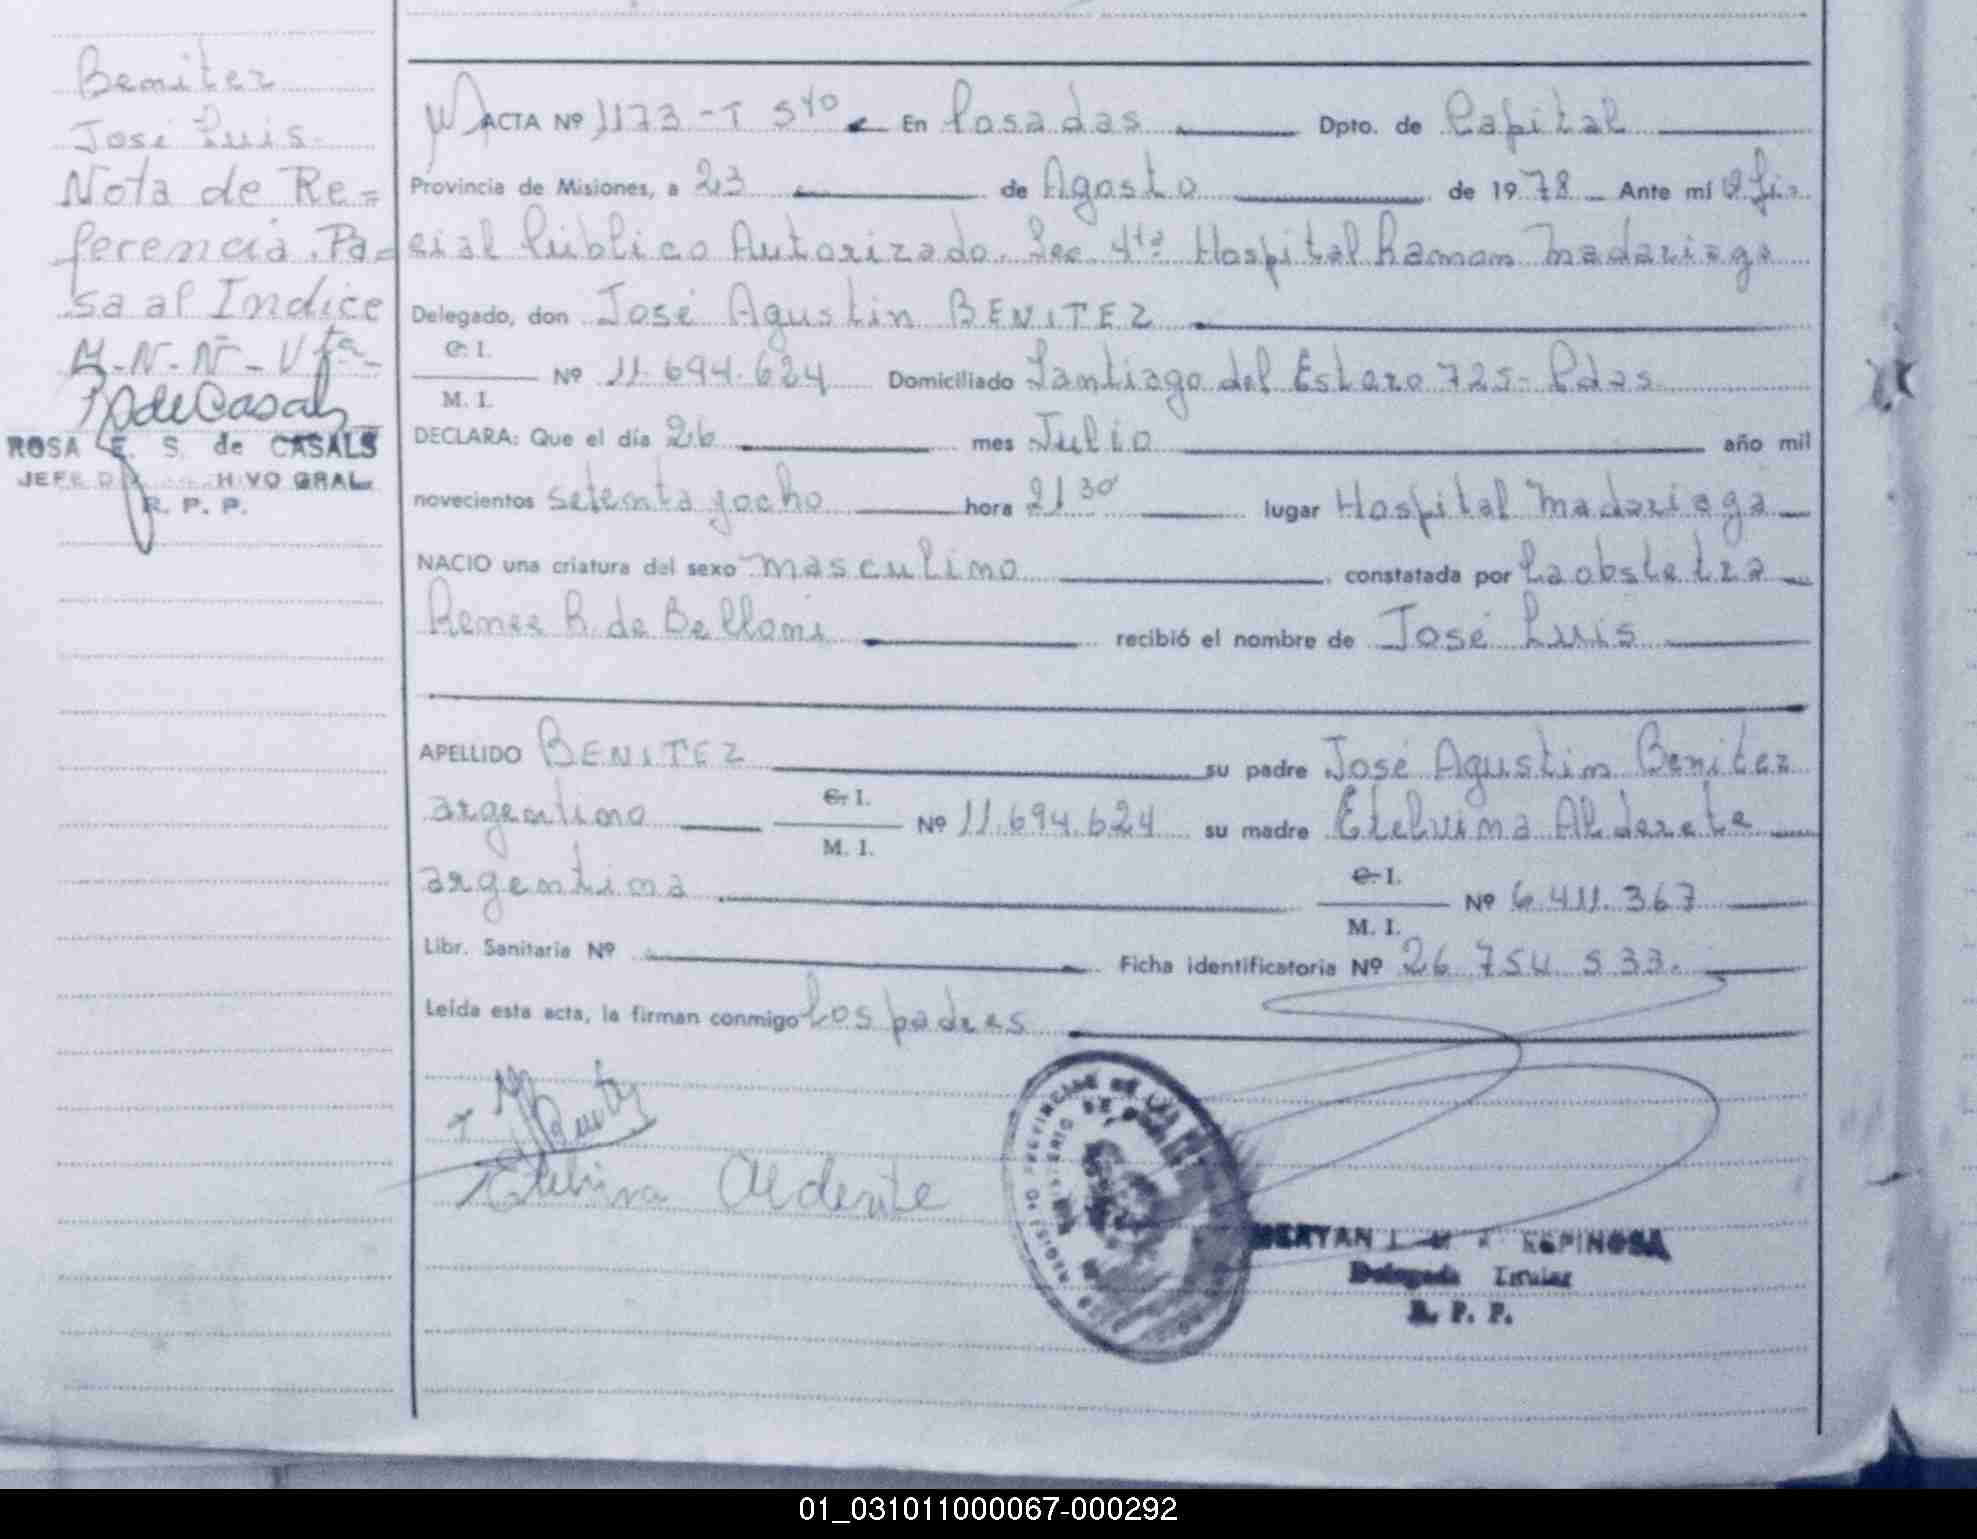 Benitez
José Luis.
Nota de Re=
ferencia. Pa=
sa al Indice
M-N-Ñ-Vta-
RdeCasals
ROSA E. S. de CASALS
JEFE HIVO GRAL.
R. P. P.
ACTA Nº 1173-T 5to En Posadas Dpto. de Capital
Provincia de Misiones, a 23 de Agosto de 1978 Ante mí Ofi-
cial Público Autorizado. Sec. 4ta Hospital Ramon Madariaga
Delegado, don José Agustin BENITEZ
C. I.
M. I.
Nº 11.694.624 Domiciliado Santiago del Estero 725- Pdas
DECLARA: Que el día 26 mes Julio año mil
novecientos setenta y ocho hora 21 30' lugar Hospital Madariaga
NACIO una criatura del sexo masculino constatada por la obstetra
Renee R. de Belloni recibió el nombre de José Luis
APELLIDO BENITEZ su padre José Agustin Benitez
argentino C. I. M. I. Nº 11.694.624 su madre Etelvina Alderete
argentina C. I. M. I. Nº 6.411.367
Libr. Sanitaria Nº Ficha identificatoria Nº 26 754 533.
Leída esta acta, la firman conmigo los padres
Etelvina Alderete
ESPINOSA
Delegada Titular
R. P. P.
01_031011000067-000292